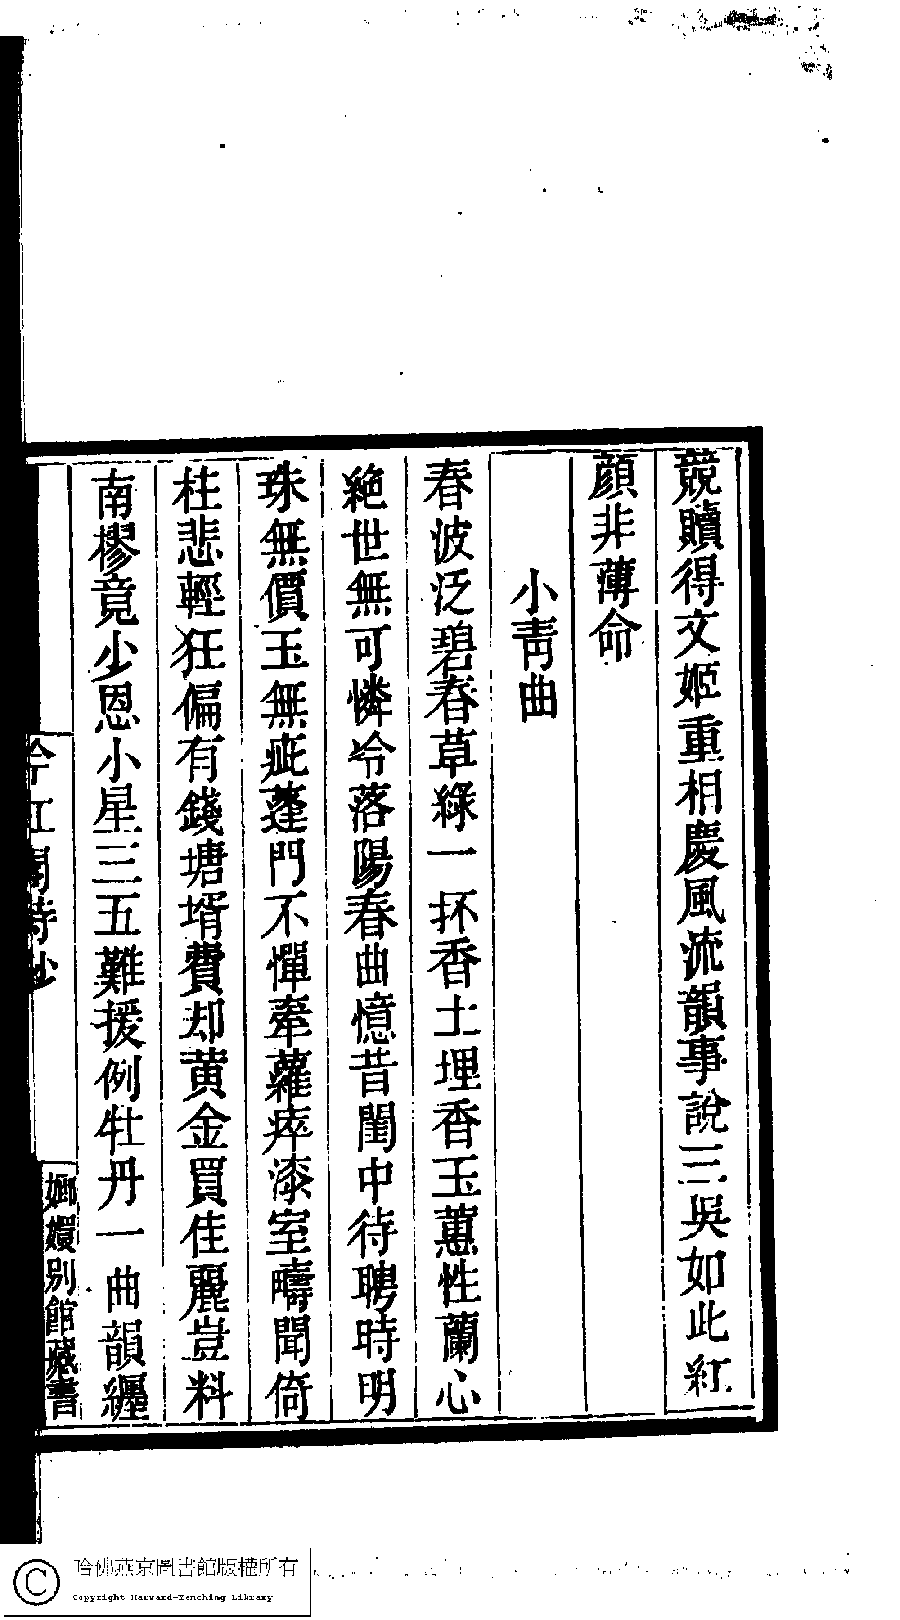 競贖得文姬重相慶風流韻事說三吳如此紅
顔非薄命
小青曲
春波泛碧春草綠一抔香土埋香玉蕙性蘭心
絶世無可憐冷落陽春曲憶昔閨中待聘時明
珠無價玉無疵蓬門不憚牽蘿瘁漆室疇聞倚
柱悲輕狂偏有錢塘壻費却黄金買佳麗豈料
南樛竟少恩小星三五難援例牡丹一曲韻纏
吟紅閣詩鈔
嫏嬛别館藏書
哈佛燕京圖書館版權所有
Copyright Harvard-Yenching Library